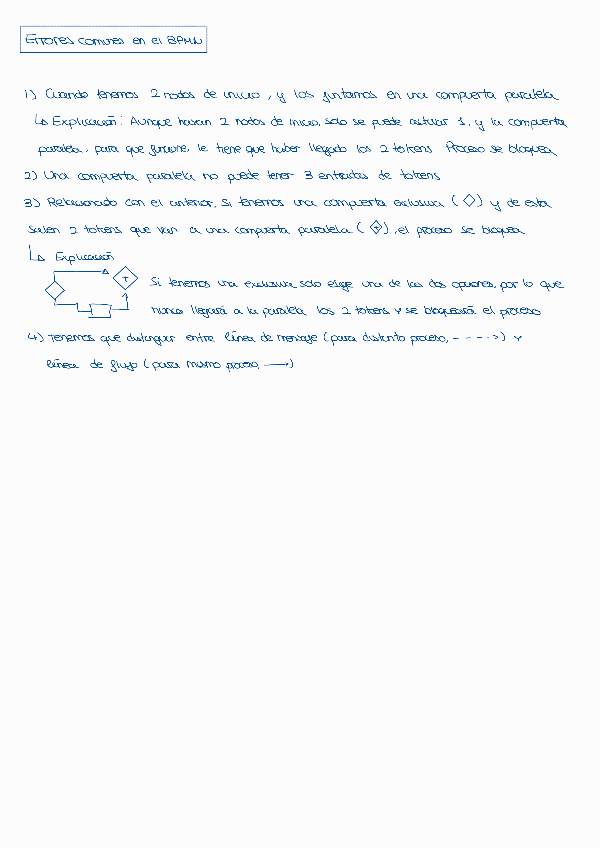 Errores comunes en el BPMN
1) Cuando tenemos 2 nodos de inicio, y los juntamos en una compuerta paralela
↳ Explicación: Aunque hayan 2 nodos de inicio, solo se puede activar 1, y la compuerta
paralela, para que funcione, le tiene que haber llegado los 2 tokens Proceso se bloquea
2) Una compuerta paralela no puede tener 3 entradas de tokens
3) Relacionado con el anterior, si tenemos una compuerta exclusiva (◇) y de esta
salen 2 tokens que van a una compuerta paralela (+), el proceso se bloquea
↳ Explicación
+
Si tenemos una exclusiva solo elige una de las dos opciones, por lo que
nunca llegará a la paralela los 2 tokens y se bloqueará el proceso
4) Tenemos que distinguir entre línea de mensaje (para distinto proceso, - - - ->) y
línea de flujo (para mismo proceso, →)